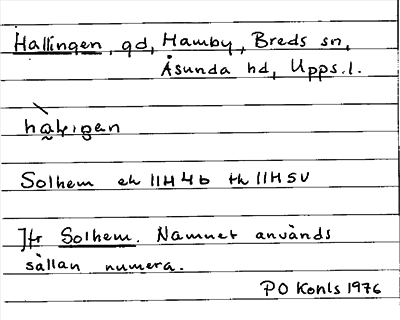 Hallingen, gd, Hamby, Breds sn,
Åsunda hd, Upps.l.
Solhem ek 11H4b tk 11H5V
Jfr Solhem. Namnet används
sällan numera.
PO Konls 1976